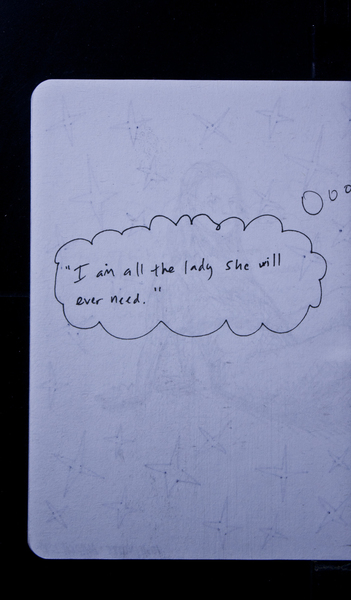 "I am all the lady she will
ever need."